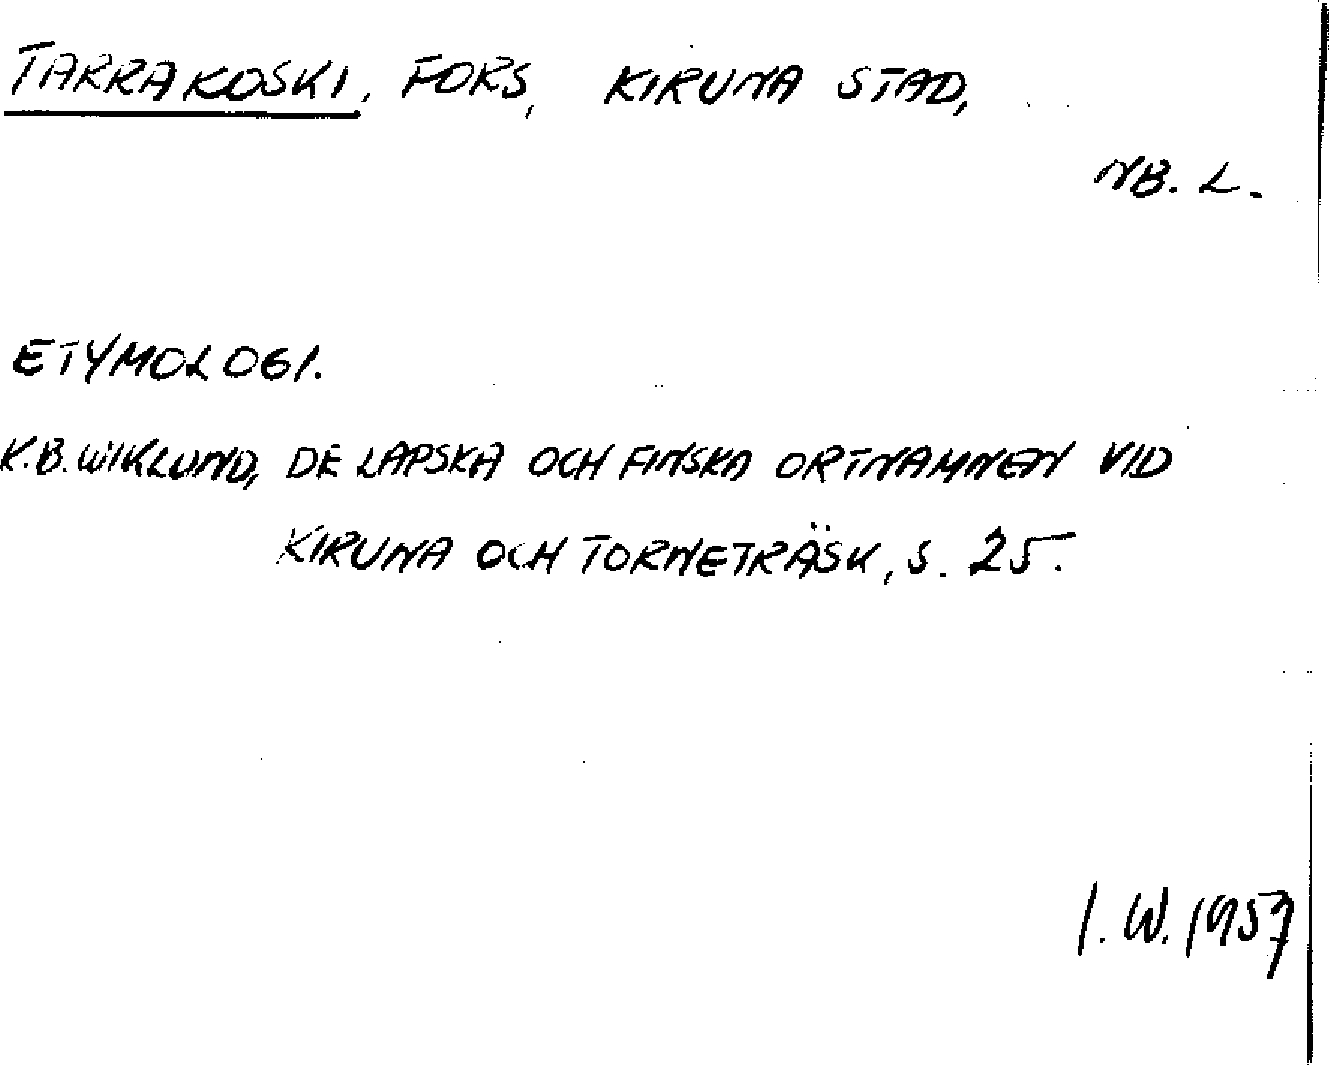 TARRAKOSKI, FORS, KIRUNA STAD,
NB. L.
ETYMOLOGI.
K.B. WIKLUND, DE LAPSKA OCH FINSKA ORTNAMNEN VID
KIRUNA OCH TORNETRÄSK, S. 25.
I. W. 1957